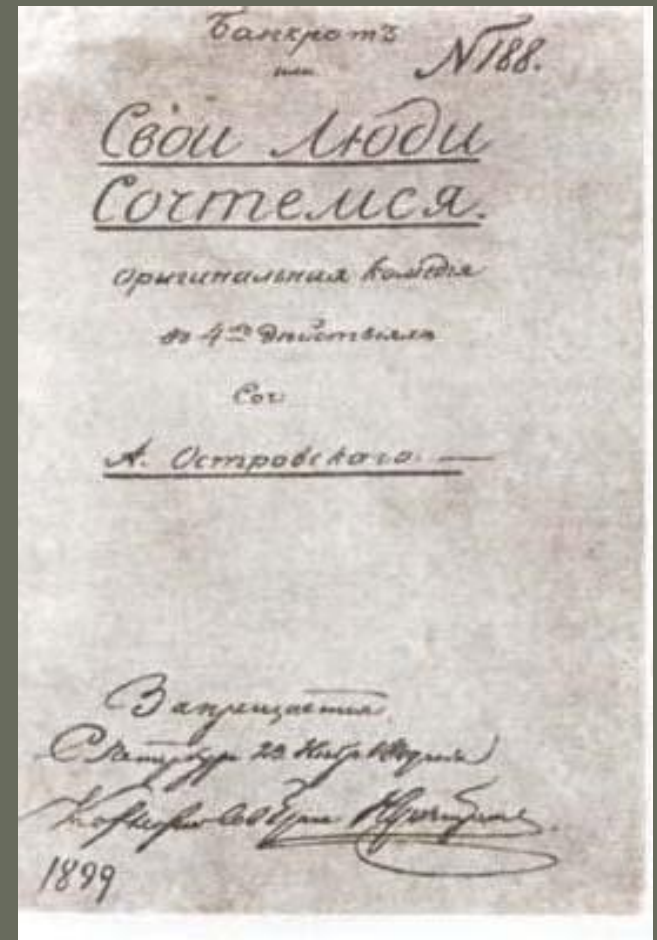 Банкротъ
или
N 188.
Свои Люди
Сочтемся.
Оригинальная комедія
въ 4хъ дѣйствіяхъ
Соч
А. Островскаго.
Запрещается.
С Петербург 23
1899